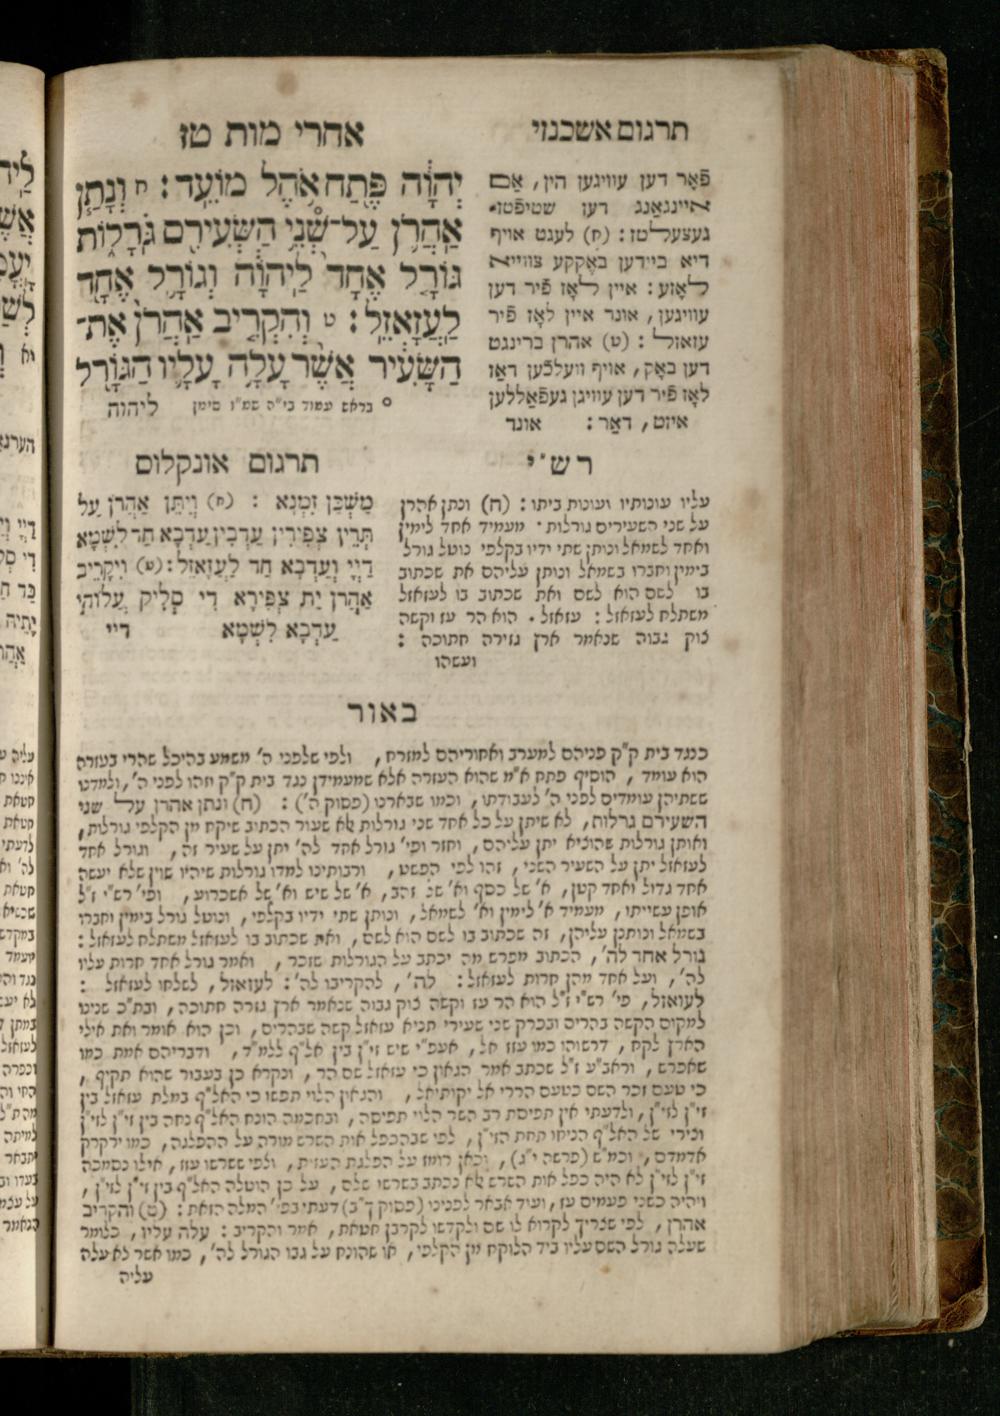 תרגום אשכנזי
אחרי מות טז
יְהוָֹה פֶּתַח אֹהֶל מוֹעֵד: ח וְנָתַן
אַהֲרֹן עַל־שְׁנֵי הַשְּׂעִירִם גֹּרָלוֹת
גּוֹרָל אֶחָד לַיהוָֹה וְגוֹרָל אֶחָד
לַעֲזָאזֵל: ט וְהִקְרִיב אַהֲרֹן אֶת־
הַשָּׂעִיר אֲשֶׁר עָלָה עָלָיו הַגּוֹרָל
° בראש עמוד בי״ה שמ״ו סימן ליהוה
פֿאָר דען עוויגען הין, אַם
איינגאַנג דען שטיפֿטז־
געצעלטז: (ח) לעגט אויף
דיא ביידען באָקקע צווייא
לאָזע: איין לאָז פֿיר דען
עוויגען, אונד איין לאָז פֿיר
עזאזל: (ט) אהרן ברינגט
דען באָק, אויף וועלכֿען דאז
לאָז פֿיר דען עוויגן געפֿאַללען
איזט, דאַר: אונד
רש״י
עליו עונותיו ועונות ביתו: (ח) ונתן אהרן
על שני השעירים גורלות · מעמיד אחד לימין
ואחד לשמאל ונותן שתי ידיו בקלפי נוטל גורל
בימין וחברו בשמאל ונותן עליהם את שכתוב
בו לשם הוא לשם ואת שכתוב בו לעזאזל
משתלח לעזאזל: עזאזל · הוא הר עז וקשה
צוק גבוה שנאמר ארץ גזירה חתוכה:
ועשהו
תרגום אונקלוס
מַשְׁכַּן זִמְנָא: (ח) וְיִתֵּן אַהֲרֹן עַל
תְּרֵין צְפִירִין עַדְבִין עַדְבָא חַד לִשְׁמָא
דַיְיָ וְעַדְבָא חַד לַעֲזָאזֵל: (ט) וִיקָרֵיב
אַהֲרֹן יָת צְפִירָא דִי סְלֵיק עֲלוֹהִי
עַדְבָא לִשְׁמָא דיי
באור
כנגד בית ק״ק פניהם למערב ואחוריהם למזרח, ולפי שלפני ה׳ משמע בהיכל שהרי בעזרה
הוא עומד, הוסיף פתח א״מ שהוא העזרה אלא שמעמידן נגד בית ק״ק וזהו לפני ה׳, ולמדנו
ששתיהן עומדים לפני ה׳ לעבודתו, וכמו שבארנו (פסוק ה׳): (ח) ונתן אהרן על שני
השעירם גרלות, לא שיתן על כל אחד שני גורלות לא שעור הכתוב שיקח מן הקלפי גורלות,
ואותן גורלות שהוציא יתן עליהם, וחזר ופי׳ גורל אחד לה׳ יתן על שעיר זה, וגורל אחד
לעזאזל יתן על השעיר השני, זהו לפי הפשט, ורבותינו למדו גורלות שיהיו שוין שלא יעשה
אחד גדול ואחד קטן, א׳ של כסף וא׳ של זהב, א׳ של שיש וא׳ של אשכרוע, ופי׳ רש״י ז״ל
אופן עשייתו, מעמיד א׳ לימין וא׳ לשמאל, ונותן שתי ידיו בקלפי, ונוטל גורל בימין וחברו
בשמאל ונותנן עליהן, זה שכתוב בו לשם הוא לשם, ואת שכתוב בו לעזאזל משתלח לעזאזל:
גורל אחד לה׳, הכתוב מפרש מה יכתב על הגורלות שזכר, ואמר גורל אחד חרות עליו
לה׳, ועל אחד מהן חרות לעזאזל: לה׳, להקריבו לה׳: לעזאזל, לשלחו לעזאזל:
לעזאזל, פי׳ רש״י ז״ל הוא הר עז וקשה צוק גבוה שנאמר ארץ גזרה חתוכה, ובת״כ שנינו
למקום הקשה בהרים ובפרק שני שעירי תניא עזאזל קשה שבהרים, וכן הוא אומר ואת אילי
הארץ לקח, דרשוהו כמו עזז אל, אעפ״י שיש זי״ן בין אל״ף ללמ״ד, ודבריהם אמת כמו
שאפרש, וראב״ע ז״ל שכתב אמר הגאון כי עזאזל שם הר, ונקרא כן בעבור שהוא תקיף,
כי טעם זכר השם כטעם הררי אל יקותיאל, והגאון הלוי תפשו כי האל״ף במלת עזאזל בין
זי״ן לזי״ן, ולדעתי אין תפיסת רב השר הלוי תפיסה, ובחכמה הונח האל״ף נחה בין זי״ן לזי״ן
וכירי של האל״ף הניחו תחת הזי״ן, לפי שבהכפל אות השרש מורה על ההפלגה, כמו ירקרק
אדמדם, וכמ״ש (פרשה י״ג), וכאן רומז על הפלגת העזית, ולפי ששרשו עזז, אילו נסמכה
זי״ן לזי״ן לא היה כפל אות השרש לא נכתב בשרשו שלם, על כן הוטלה האל״ף בין זי״ן לזי״ן,
ויהיה כשני פעמים עז, ועוד אבאר לפנינו (פסוק ך״ב) דעתי בפי׳ המלה הזאת: (ט) והקריב
אהרן, לפי שצריך לקרוא לו שם ולקדשו לקרבן חטאת, אמר והקריב: עלה עליו, כלומר
שעלה גורל השם עליו ביד הלוקח מן הקלפי, או שהונח על גבו הגורל לה׳, כמו אשר לא עלה
עליה